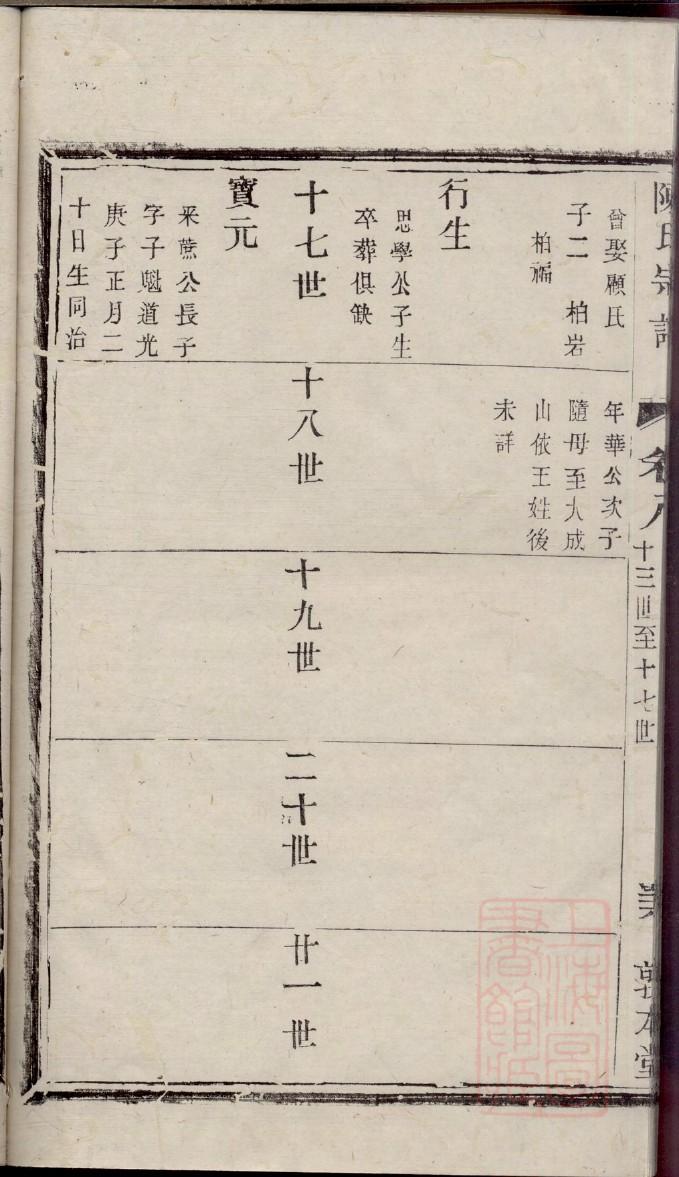 陳氏宗譜
卷八
十三世至十七世
敦本堂
曾娶顧氏
子二 柏岩
柏福
年華公次子
隨母至大成
山依王姓後
未詳
行生
思學公子生
卒葬俱缺
十七世
十八世
十九世
二十世
廿一世
寶元
采蔗公長子
字子魁道光
庚子正月二
十日生同治
上海圖書館藏